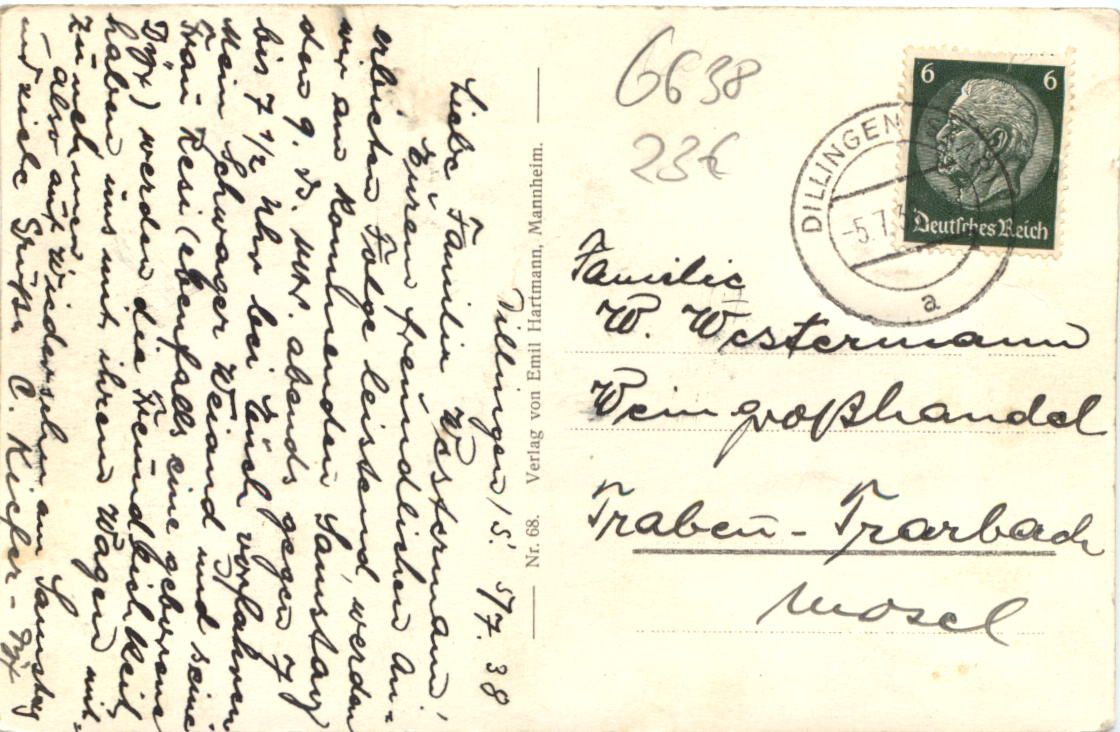 Dillingen/S. 5/7. 38
Liebe Familie Westermann!
Eurem freundlichen An-
erbieten Folge leistend, werden
wir am kommenden Samstag
den 9. ds. Mts. abends gegen 7
bis 7 1/2 Uhr bei Euch vorfahren
Mein Schwager Weiand und seine
Frau Resi (ebenfalls eine geborene
werden die Freundlichkeit
haben uns mit ihrem Wagen mit-
zunehmen.
also auf Wiedersehn am Samstag
und viele Grüße C. Kiefer-
Nr. 68. Verlag von Emil Hartmann, Mannheim.
6638
23€
6 6
Deutsches Reich
DILLINGEN
-5.7.3
a
Familie
W. Westermann
Weingroßhandel
Traben-Trarbach
Mosel